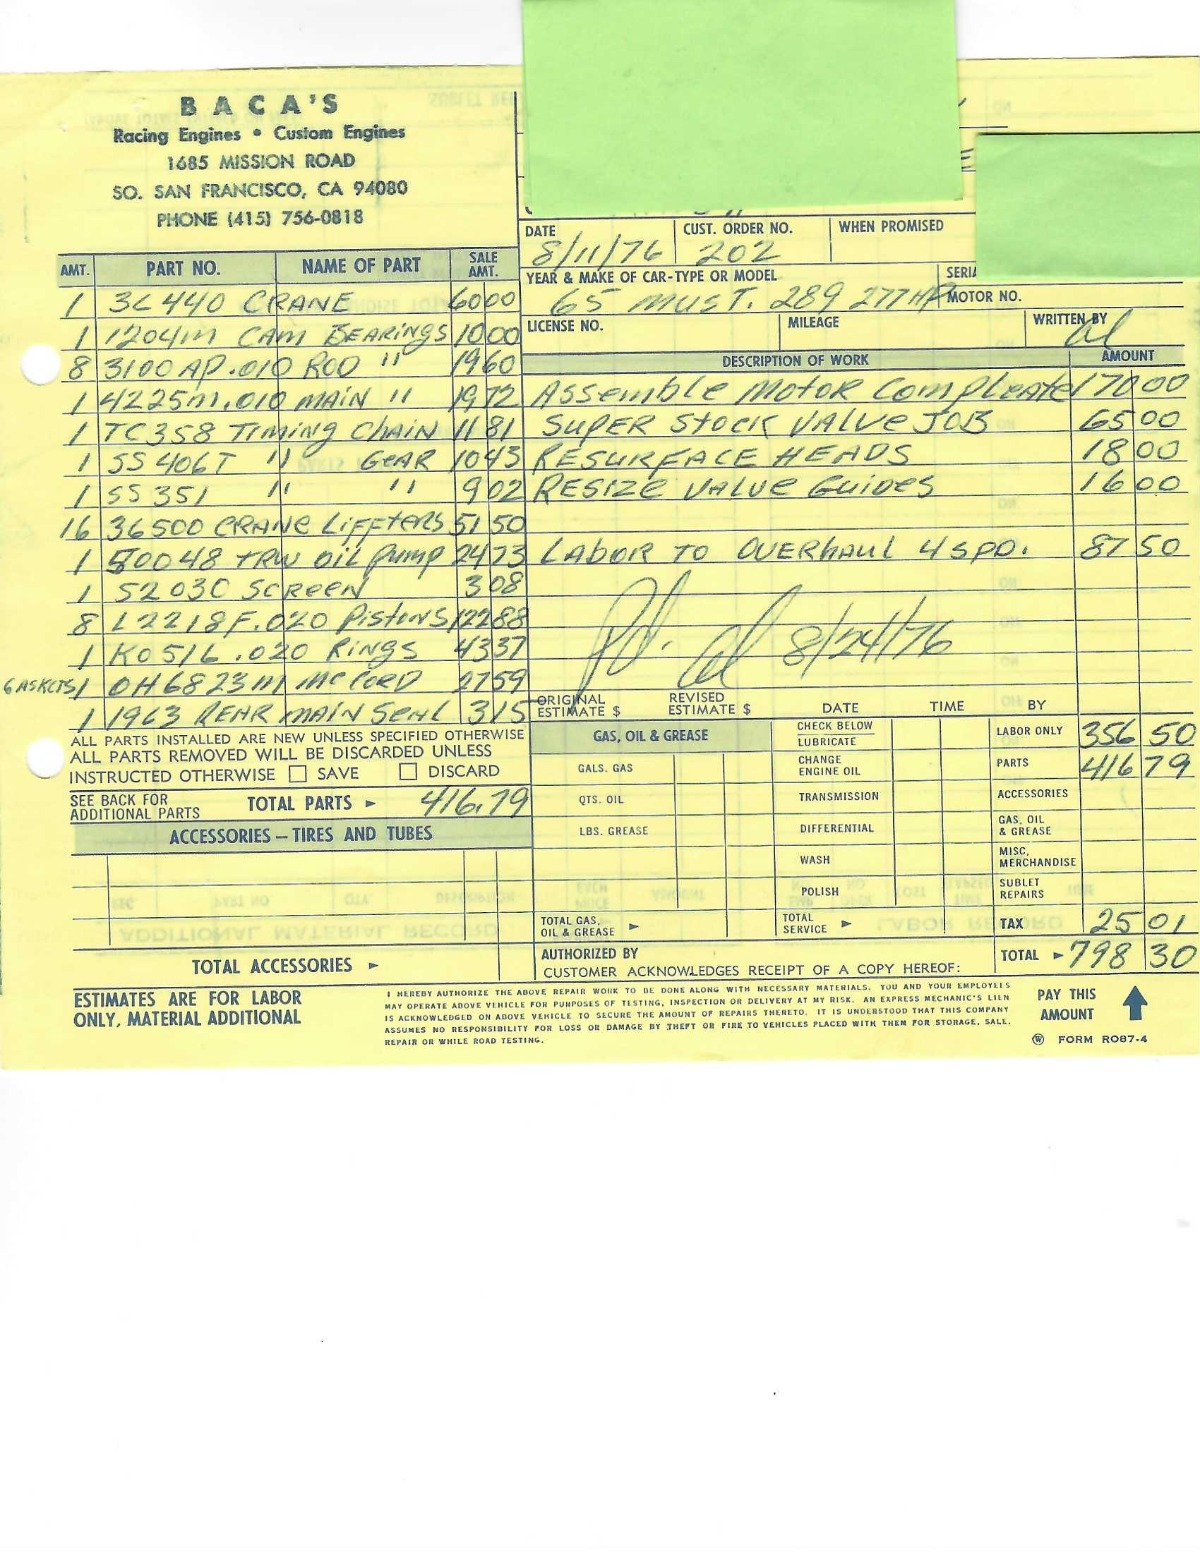 BACA'S
Racing Engines • Custom Engines
1685 MISSION ROAD
SO. SAN FRANCISCO, CA 94080
PHONE (415) 756-0818
DATE 8/11/76 CUST. ORDER NO. 202 WHEN PROMISED
YEAR & MAKE OF CAR-TYPE OR MODEL SERIA
65 MUST. 289 277HP MOTOR NO.
LICENSE NO. MILEAGE WRITTEN BY al
AMT. PART NO. NAME OF PART SALE AMT.
1 3C440 CRANE 60 00
1 1204M CAM BEARINGS 10 00
8 3100AP.010 ROD " 19 60
1 4225M.010 MAIN " 19 72
1 TC358 TIMING CHAIN 11 81
1 SS406T " GEAR 10 43
1 SS351 " " 9 02
16 36500 CRANE LIFFTERS 51 50
1 50048 TRW OIL PUMP 24 73
1 52030 SCREEN 3 08
8 L2218F.020 PISTONS 122 88
1 KO516 .020 RINGS 43 37
GASKETS 1 OH6823M MCCORD 27 59
1 1963 REAR MAIN SEAL 3 15
ALL PARTS INSTALLED ARE NEW UNLESS SPECIFIED OTHERWISE
ALL PARTS REMOVED WILL BE DISCARDED UNLESS
INSTRUCTED OTHERWISE ☐ SAVE ☐ DISCARD
SEE BACK FOR ADDITIONAL PARTS TOTAL PARTS ► 416.79
ACCESSORIES — TIRES AND TUBES
TOTAL ACCESSORIES ►
ESTIMATES ARE FOR LABOR
ONLY, MATERIAL ADDITIONAL
DESCRIPTION OF WORK AMOUNT
ASSEMBLE MOTOR COMPLEATE 170 00
SUPER STOCK VALVE JOB 65 00
RESURFACE HEADS 18 00
RESIZE VALVE GUIDES 16 00
LABOR TO OVERHAUL 4 SPD. 87 50
Pd. al 8/24/76
ORIGINAL ESTIMATE $ REVISED ESTIMATE $ DATE TIME BY
GAS, OIL & GREASE CHECK BELOW LABOR ONLY 356 50
LUBRICATE
GALS. GAS CHANGE ENGINE OIL PARTS 416 79
QTS. OIL TRANSMISSION ACCESSORIES
LBS. GREASE DIFFERENTIAL GAS, OIL & GREASE
WASH MISC. MERCHANDISE
POLISH SUBLET REPAIRS
TOTAL GAS, OIL & GREASE ► TOTAL SERVICE ► TAX 25 01
AUTHORIZED BY TOTAL ► 798 30
CUSTOMER ACKNOWLEDGES RECEIPT OF A COPY HEREOF:
I HEREBY AUTHORIZE THE ABOVE REPAIR WORK TO BE DONE ALONG WITH NECESSARY MATERIALS. YOU AND YOUR EMPLOYEES
MAY OPERATE ABOVE VEHICLE FOR PURPOSES OF TESTING, INSPECTION OR DELIVERY AT MY RISK. AN EXPRESS MECHANIC'S LIEN
IS ACKNOWLEDGED ON ABOVE VEHICLE TO SECURE THE AMOUNT OF REPAIRS THERETO. IT IS UNDERSTOOD THAT THIS COMPANY
ASSUMES NO RESPONSIBILITY FOR LOSS OR DAMAGE BY THEFT OR FIRE TO VEHICLES PLACED WITH THEM FOR STORAGE, SALE,
REPAIR OR WHILE ROAD TESTING.
PAY THIS
AMOUNT
FORM RO87-4